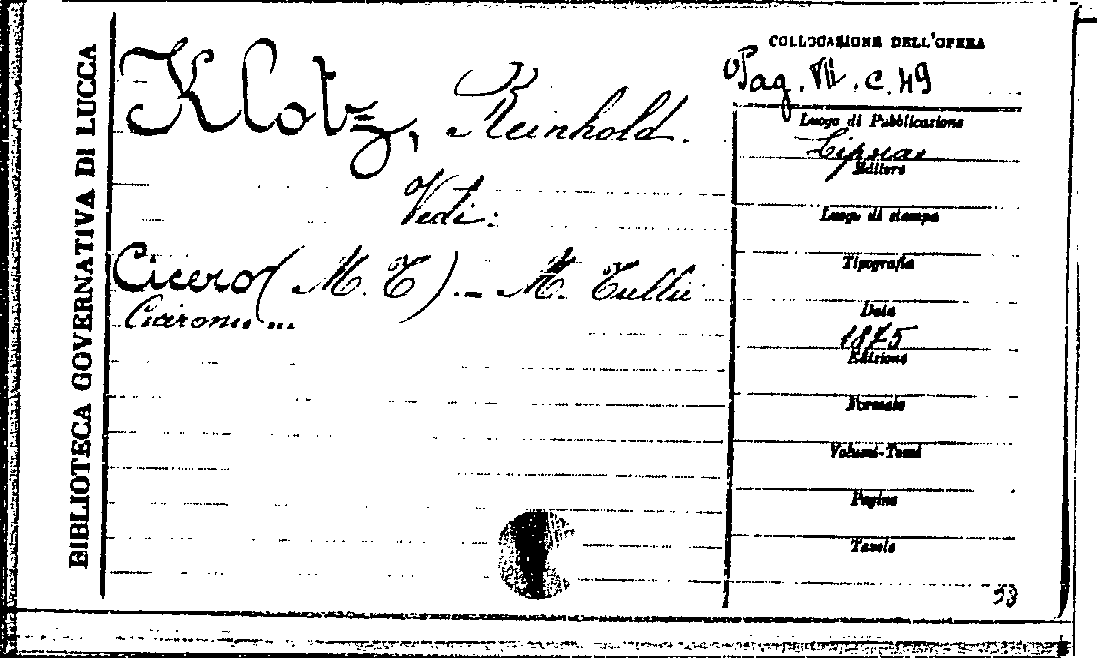 BIBLIOTECA GOVERNATIVA DI LUCCA
Klotz, Reinhold.
Vedi:
Cicero (M. T.) - M. Tullii
Ciceronis ...
COLLOCAZIONE DELL'OPERA
Pag. VII. C. 49
Luogo di Pubblicazione
Lipsiae
Editore
Luogo di stampa
Tipografia
Data
1875
Edizione
Formato
Volumi-Tomi
Pagine
Tavole